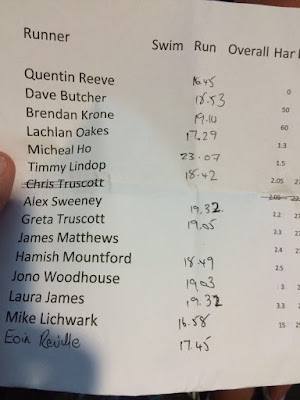 Runner Swim Run Overall Har
Quentin Reeve 16.45 0
Dave Butcher 18.53 50
Brendan Krone 19.10 60
Lachlan Oakes 17.29 1.3
Micheal Ho 23.07 1.5
Timmy Lindop 18.42 2.05
Chris Truscott 2.05
Alex Sweeney 19.32
Greta Truscott 19.05 2.3
James Matthews 2.4
Hamish Mountford 18.49 2.5
Jono Woodhouse 19.03 3
Laura James 19.32 3.3
Mike Lichwark 16.58 15
Eoin Reville 17.45